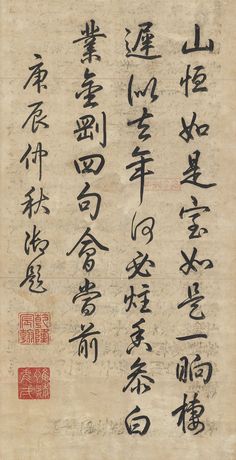 山恒如是室如是一晌棲
遲似去年何必炷香參白
業金剛四句會當前
庚辰仲秋御題
乾隆宸翰